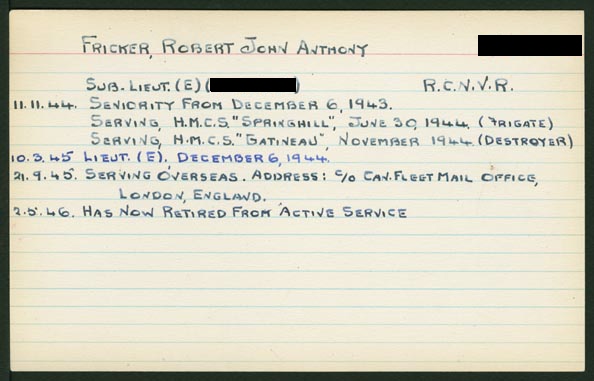 FRICKER, ROBERT JOHN ANTHONY
SUB. LIEUT. (E) ( ) R.C.N.V.R.
11.11.44. SENIORITY FROM DECEMBER 6, 1943.
SERVING, H.M.C.S. "SPRINGHILL", JUNE 30, 1944. (FRIGATE)
SERVING, H.M.C.S. "GATINEAU", NOVEMBER 1944. (DESTROYER)
10.3.45 LIEUT. (E). DECEMBER 6, 1944.
21.9.45. SERVING OVERSEAS. ADDRESS: C/O CAN. FLEET MAIL OFFICE,
LONDON, ENGLAND.
2.5.46. HAS NOW RETIRED FROM ACTIVE SERVICE